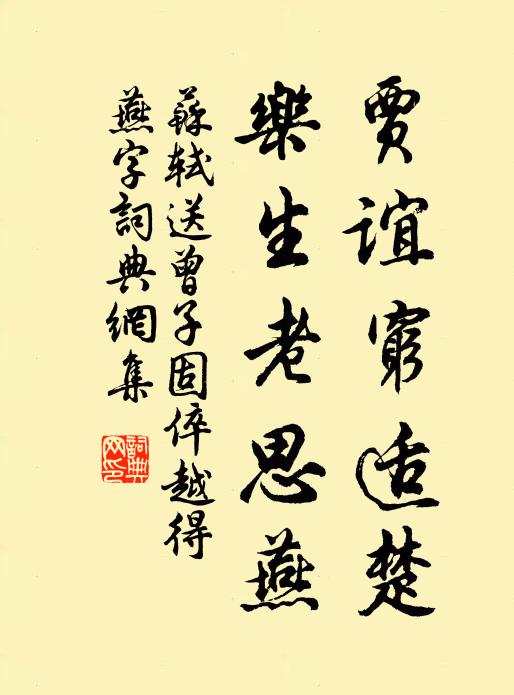 賈誼窮适楚
樂生老思燕
蘇轼送曾子固倅越得
燕字詞典網集
詞典网印